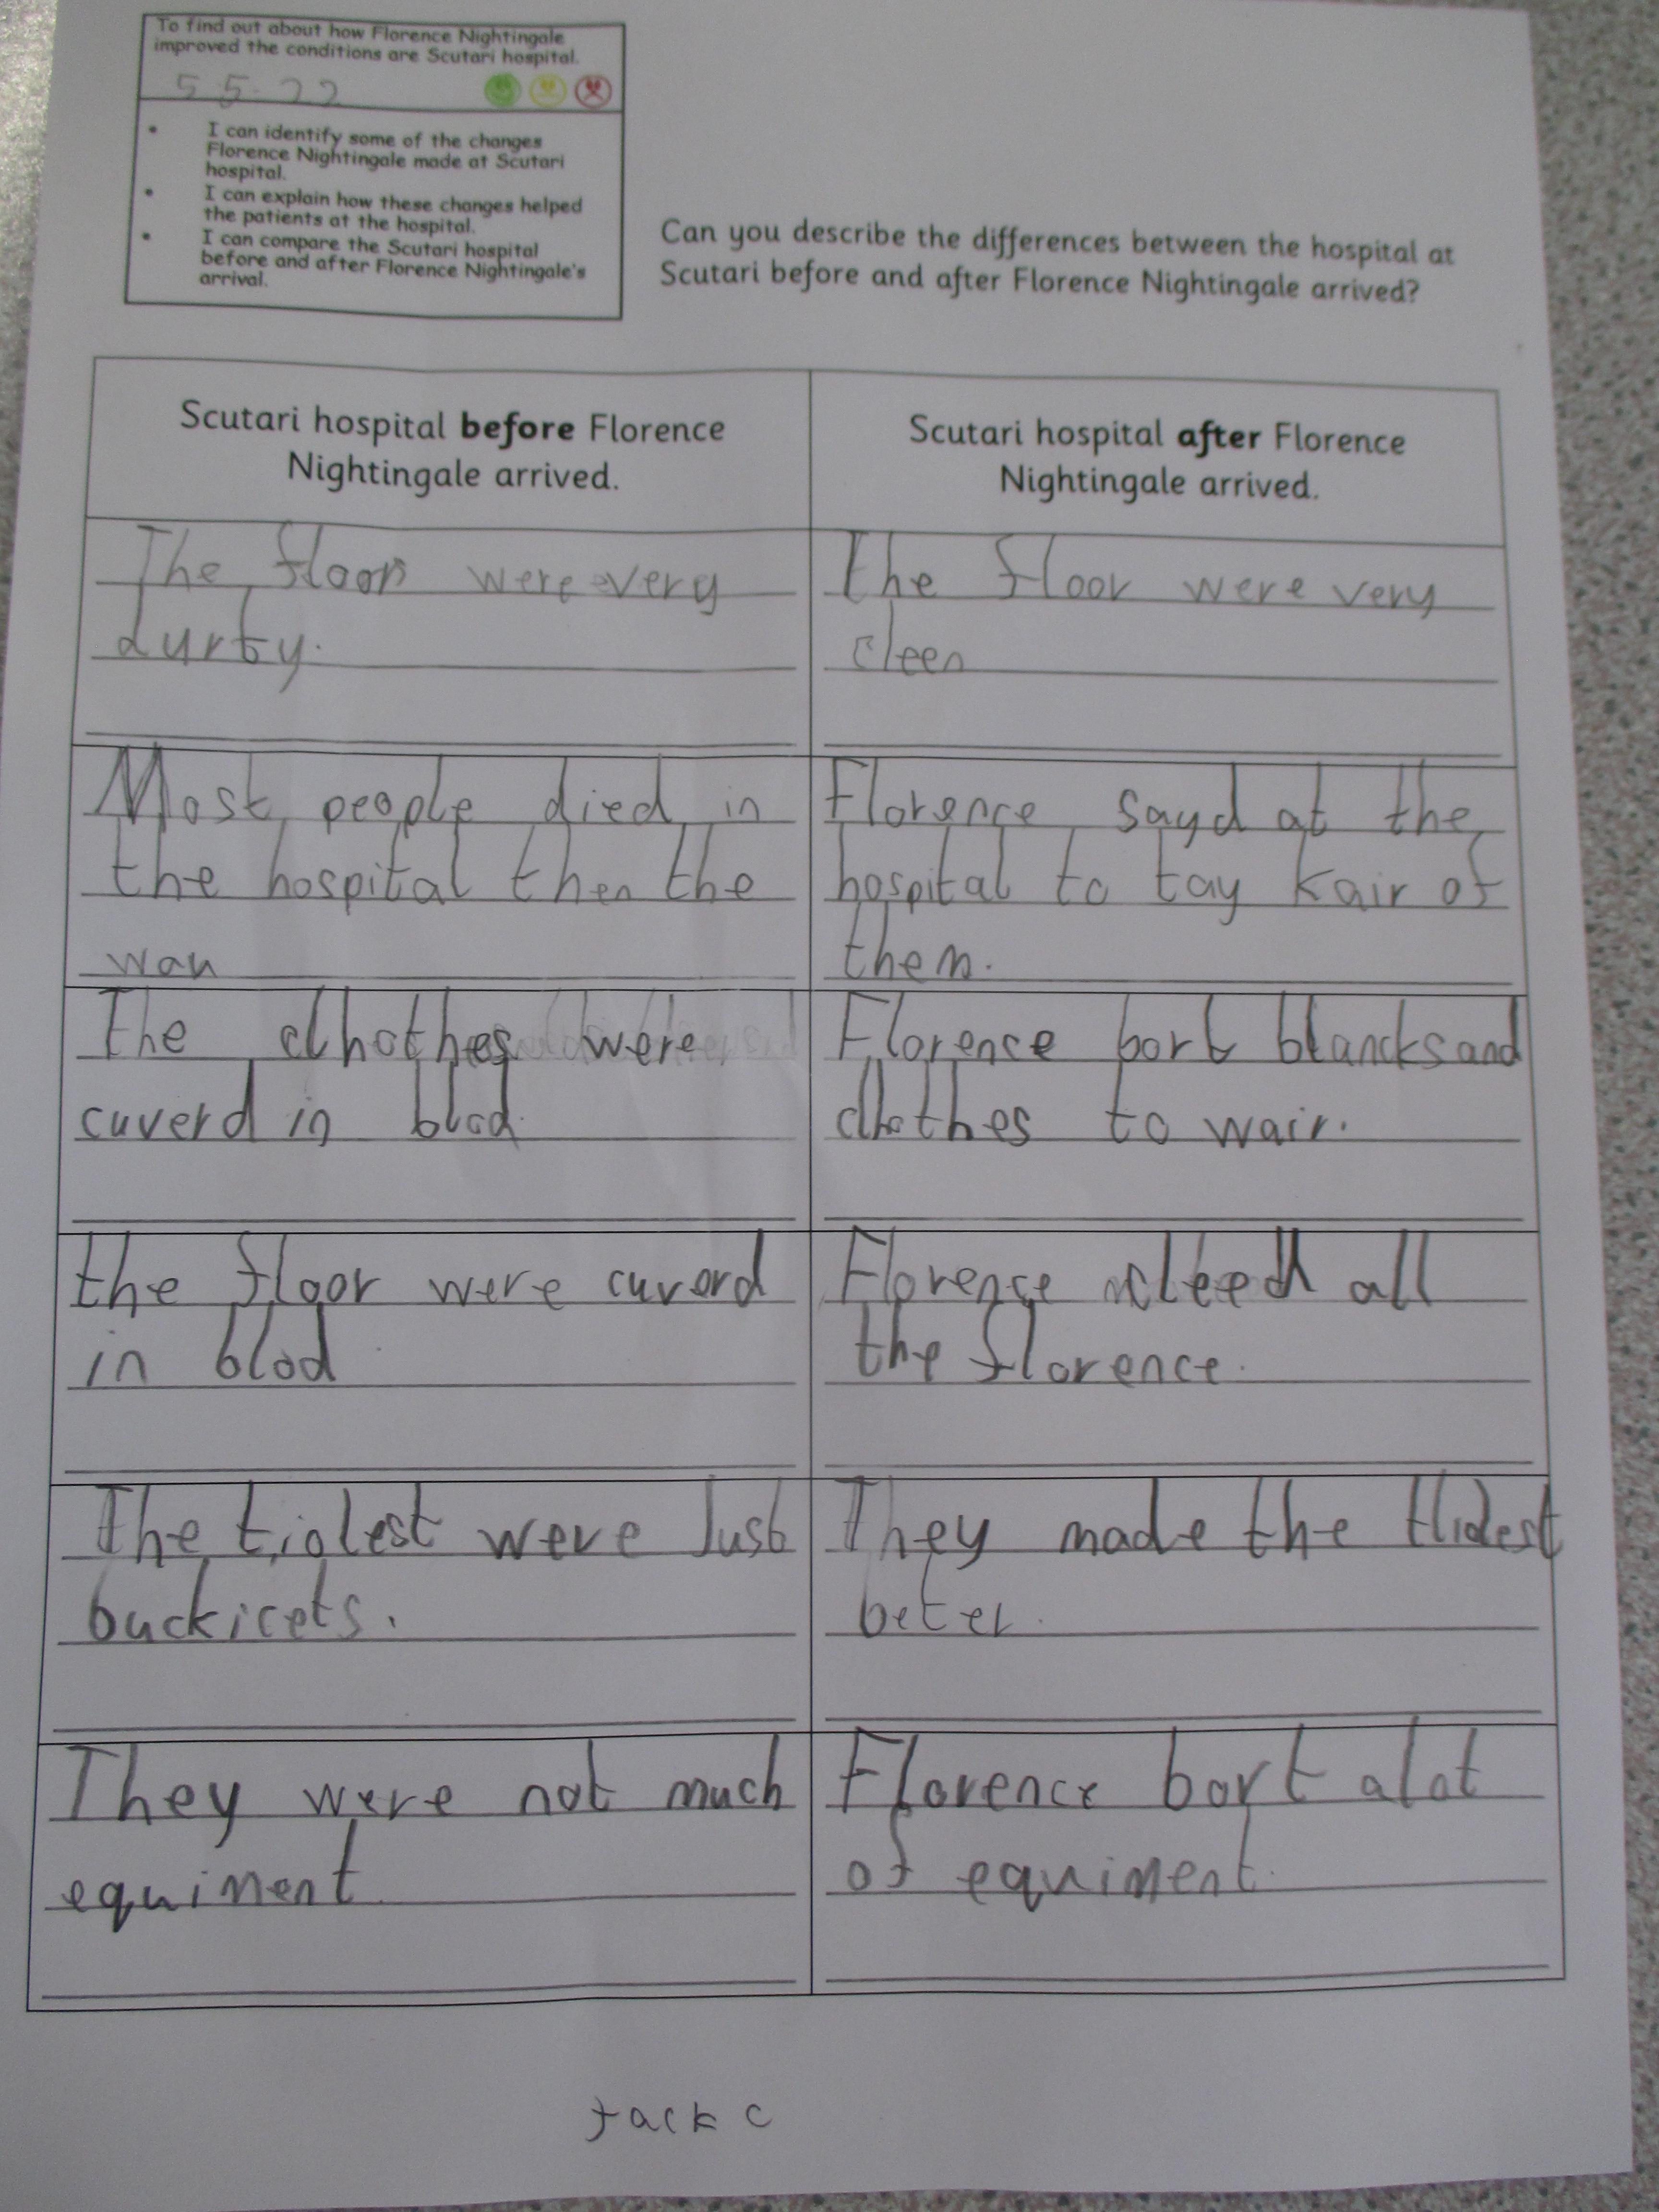 To find out about how Florence Nightingale
improved the conditions are Scutari hospital.
5 5. 22
• I can identify some of the changes
Florence Nightingale made at Scutari
hospital.
• I can explain how these changes helped
the patients at the hospital.
• I can compare the Scutari hospital
before and after Florence Nightingale's
arrival.
Can you describe the differences between the hospital at
Scutari before and after Florence Nightingale arrived?
Scutari hospital before Florence
Nightingale arrived.
Scutari hospital after Florence
Nightingale arrived.
The floors were very
durty.
The floor were very
cleen
Most people died in
the hospital then the
wau
Florence sayd at the
hospital to tay kair of
them.
The clhothes were
cuverd in blod.
Florence bort blancks and
clhothes to wair.
the floor were cuverd
in blod
Florence cleed all
the florence.
The tiolest were Just
buckicets.
They made the tlidest
beter.
They were not much
equiment
Florence bort alot
of equiment.
Jack c